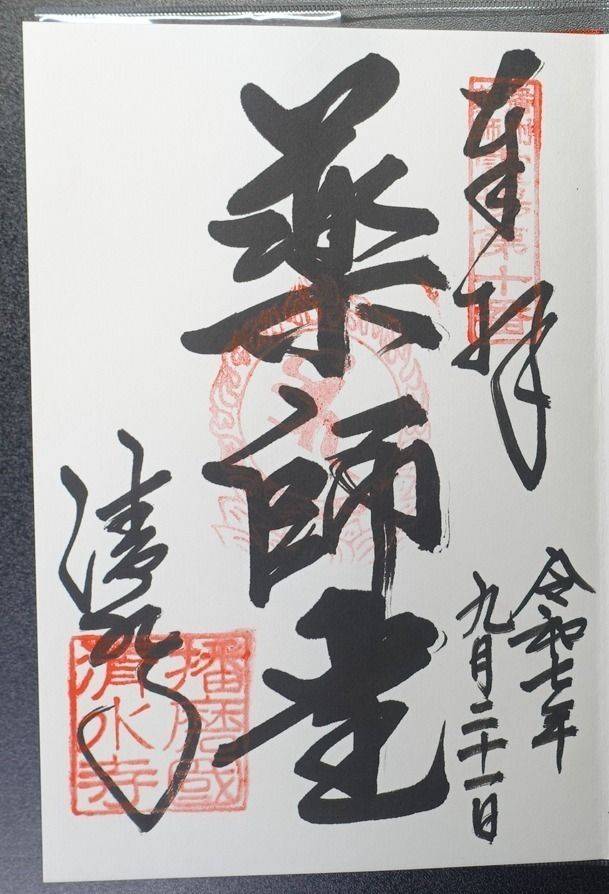 奉拝
第十番
令和七年
九月二十一日
薬師堂
清水寺
播磨國
清水寺